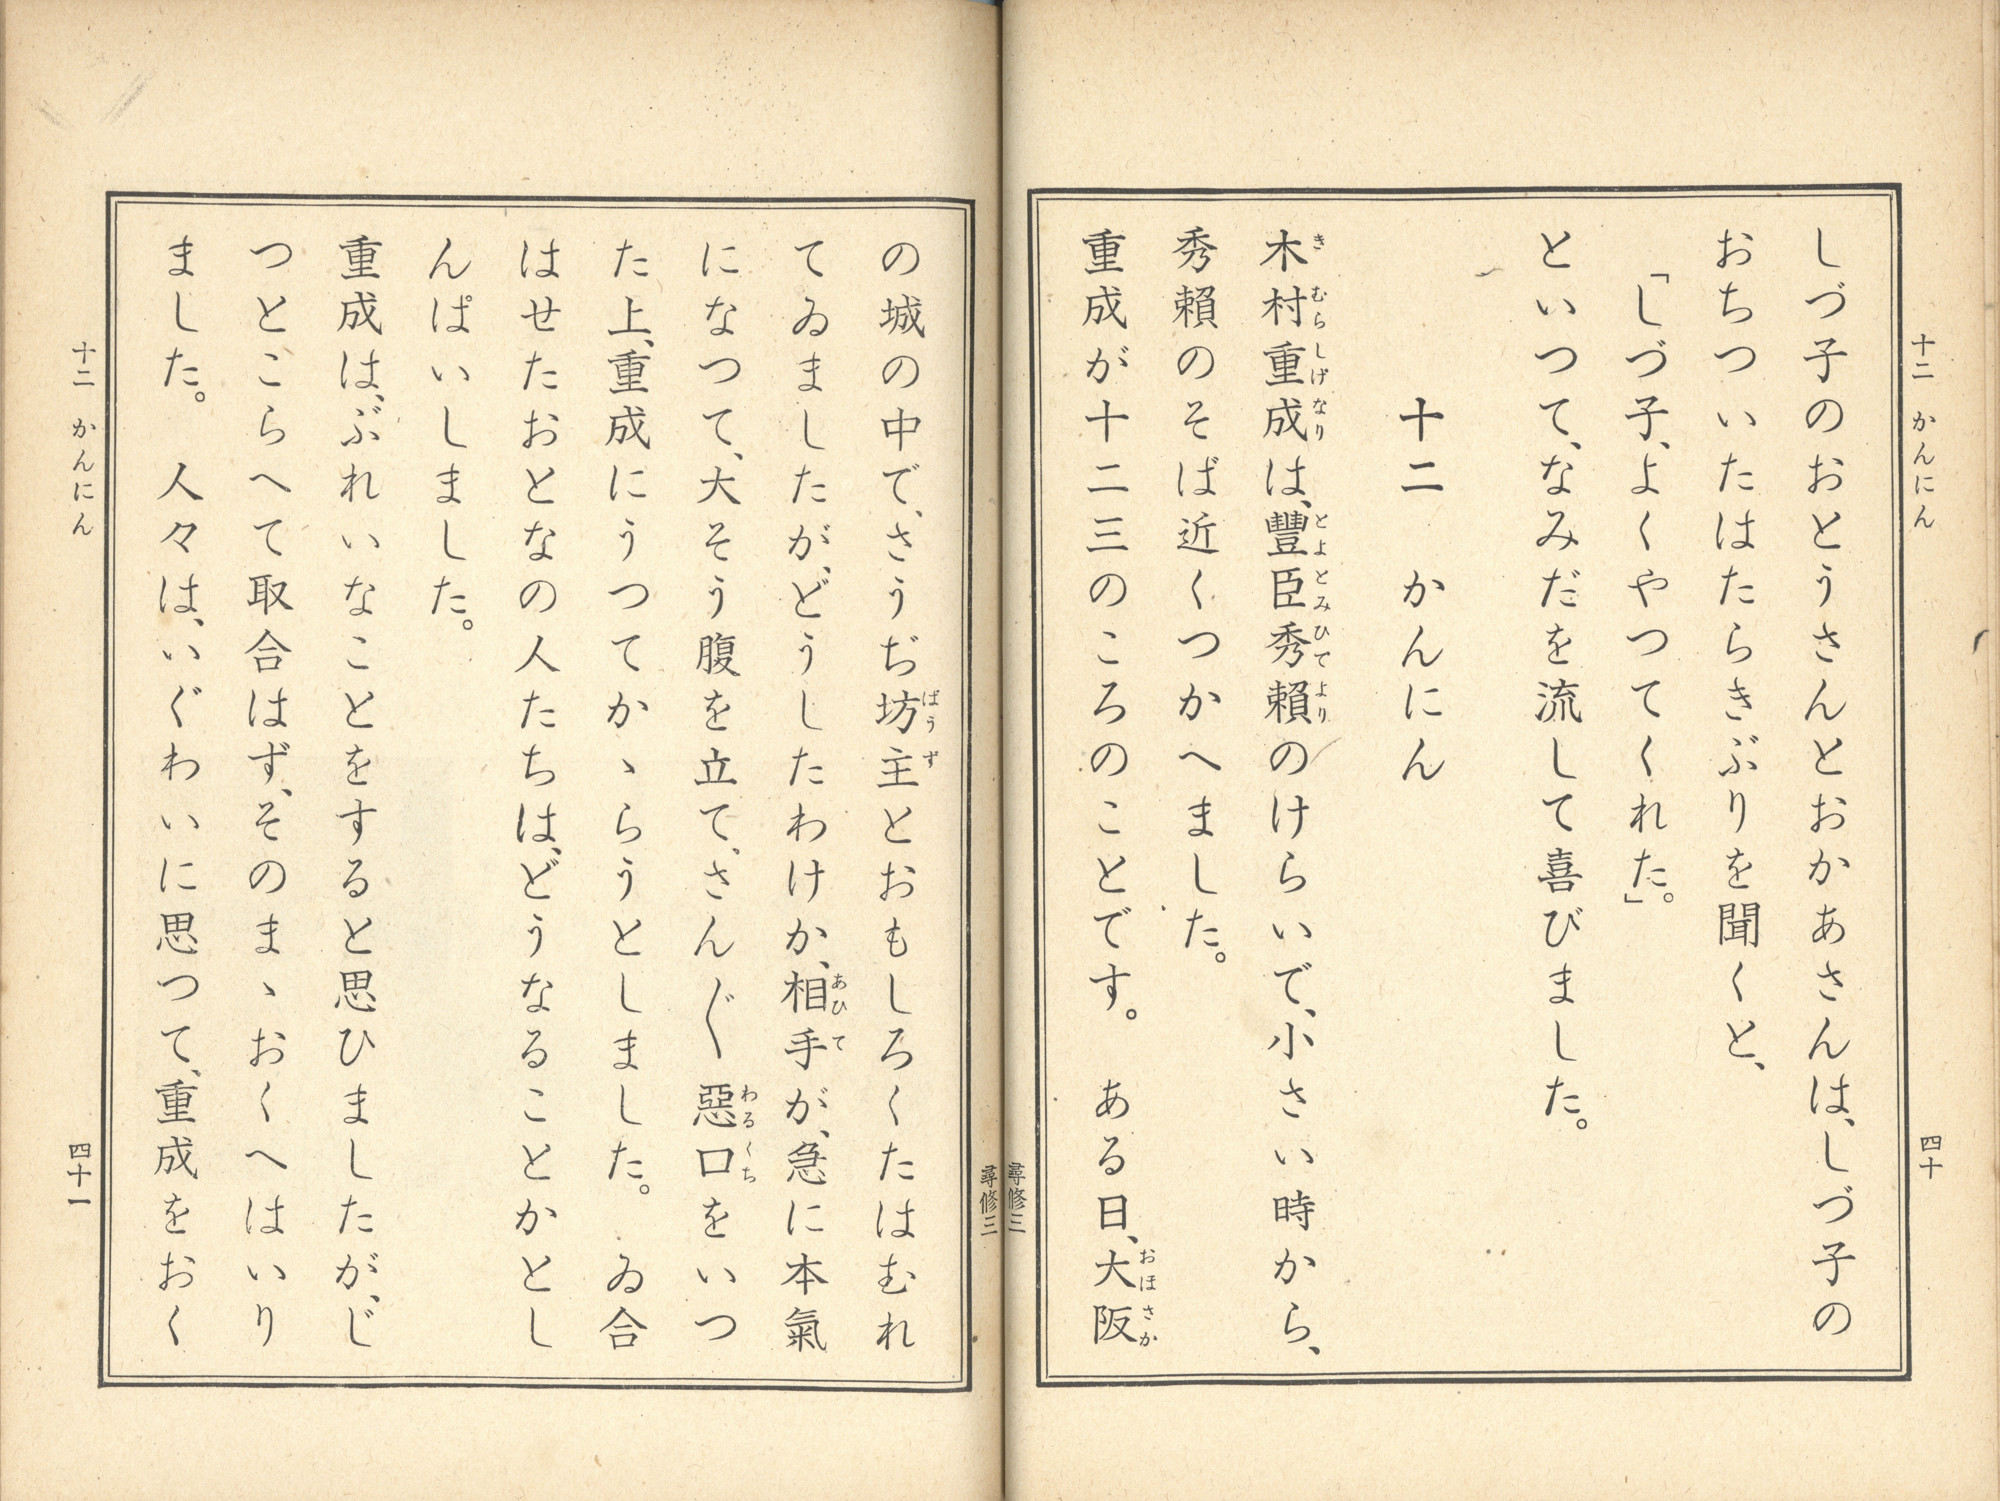 十二 かんにん
四十
しづ子のおとうさんとおかあさんは、しづ子の
おちついたはたらきぶりを聞くと、
「しづ子、よくやつてくれた。」
といつて、なみだを流して喜びました。
十二 かんにん
木村重成は、豐臣秀賴のけらいで、小さい時から、
きむらしげなり とよとみひでより
秀賴のそば近くつかへました。
重成が十二三のころのことです。 ある日、大阪
おほさか
尋修三
尋修三
の城の中で、さうぢ坊主とおもしろくたはむれ
ばうず
てゐましたが、どうしたわけか、相手が、急に本氣
あひて
になつて、大そう腹を立て、さん〴〵惡口をいつ
わるくち
た上、重成にうつてかゝらうとしました。 ゐ合
はせたおとなの人たちは、どうなることかとし
んぱいしました。
重成は、ぶれいなことをすると思ひましたが、じ
つとこらへて取合はず、そのまゝおくへはいり
ました。 人々は、いぐわいに思つて、重成をおく
十二 かんにん
四十一